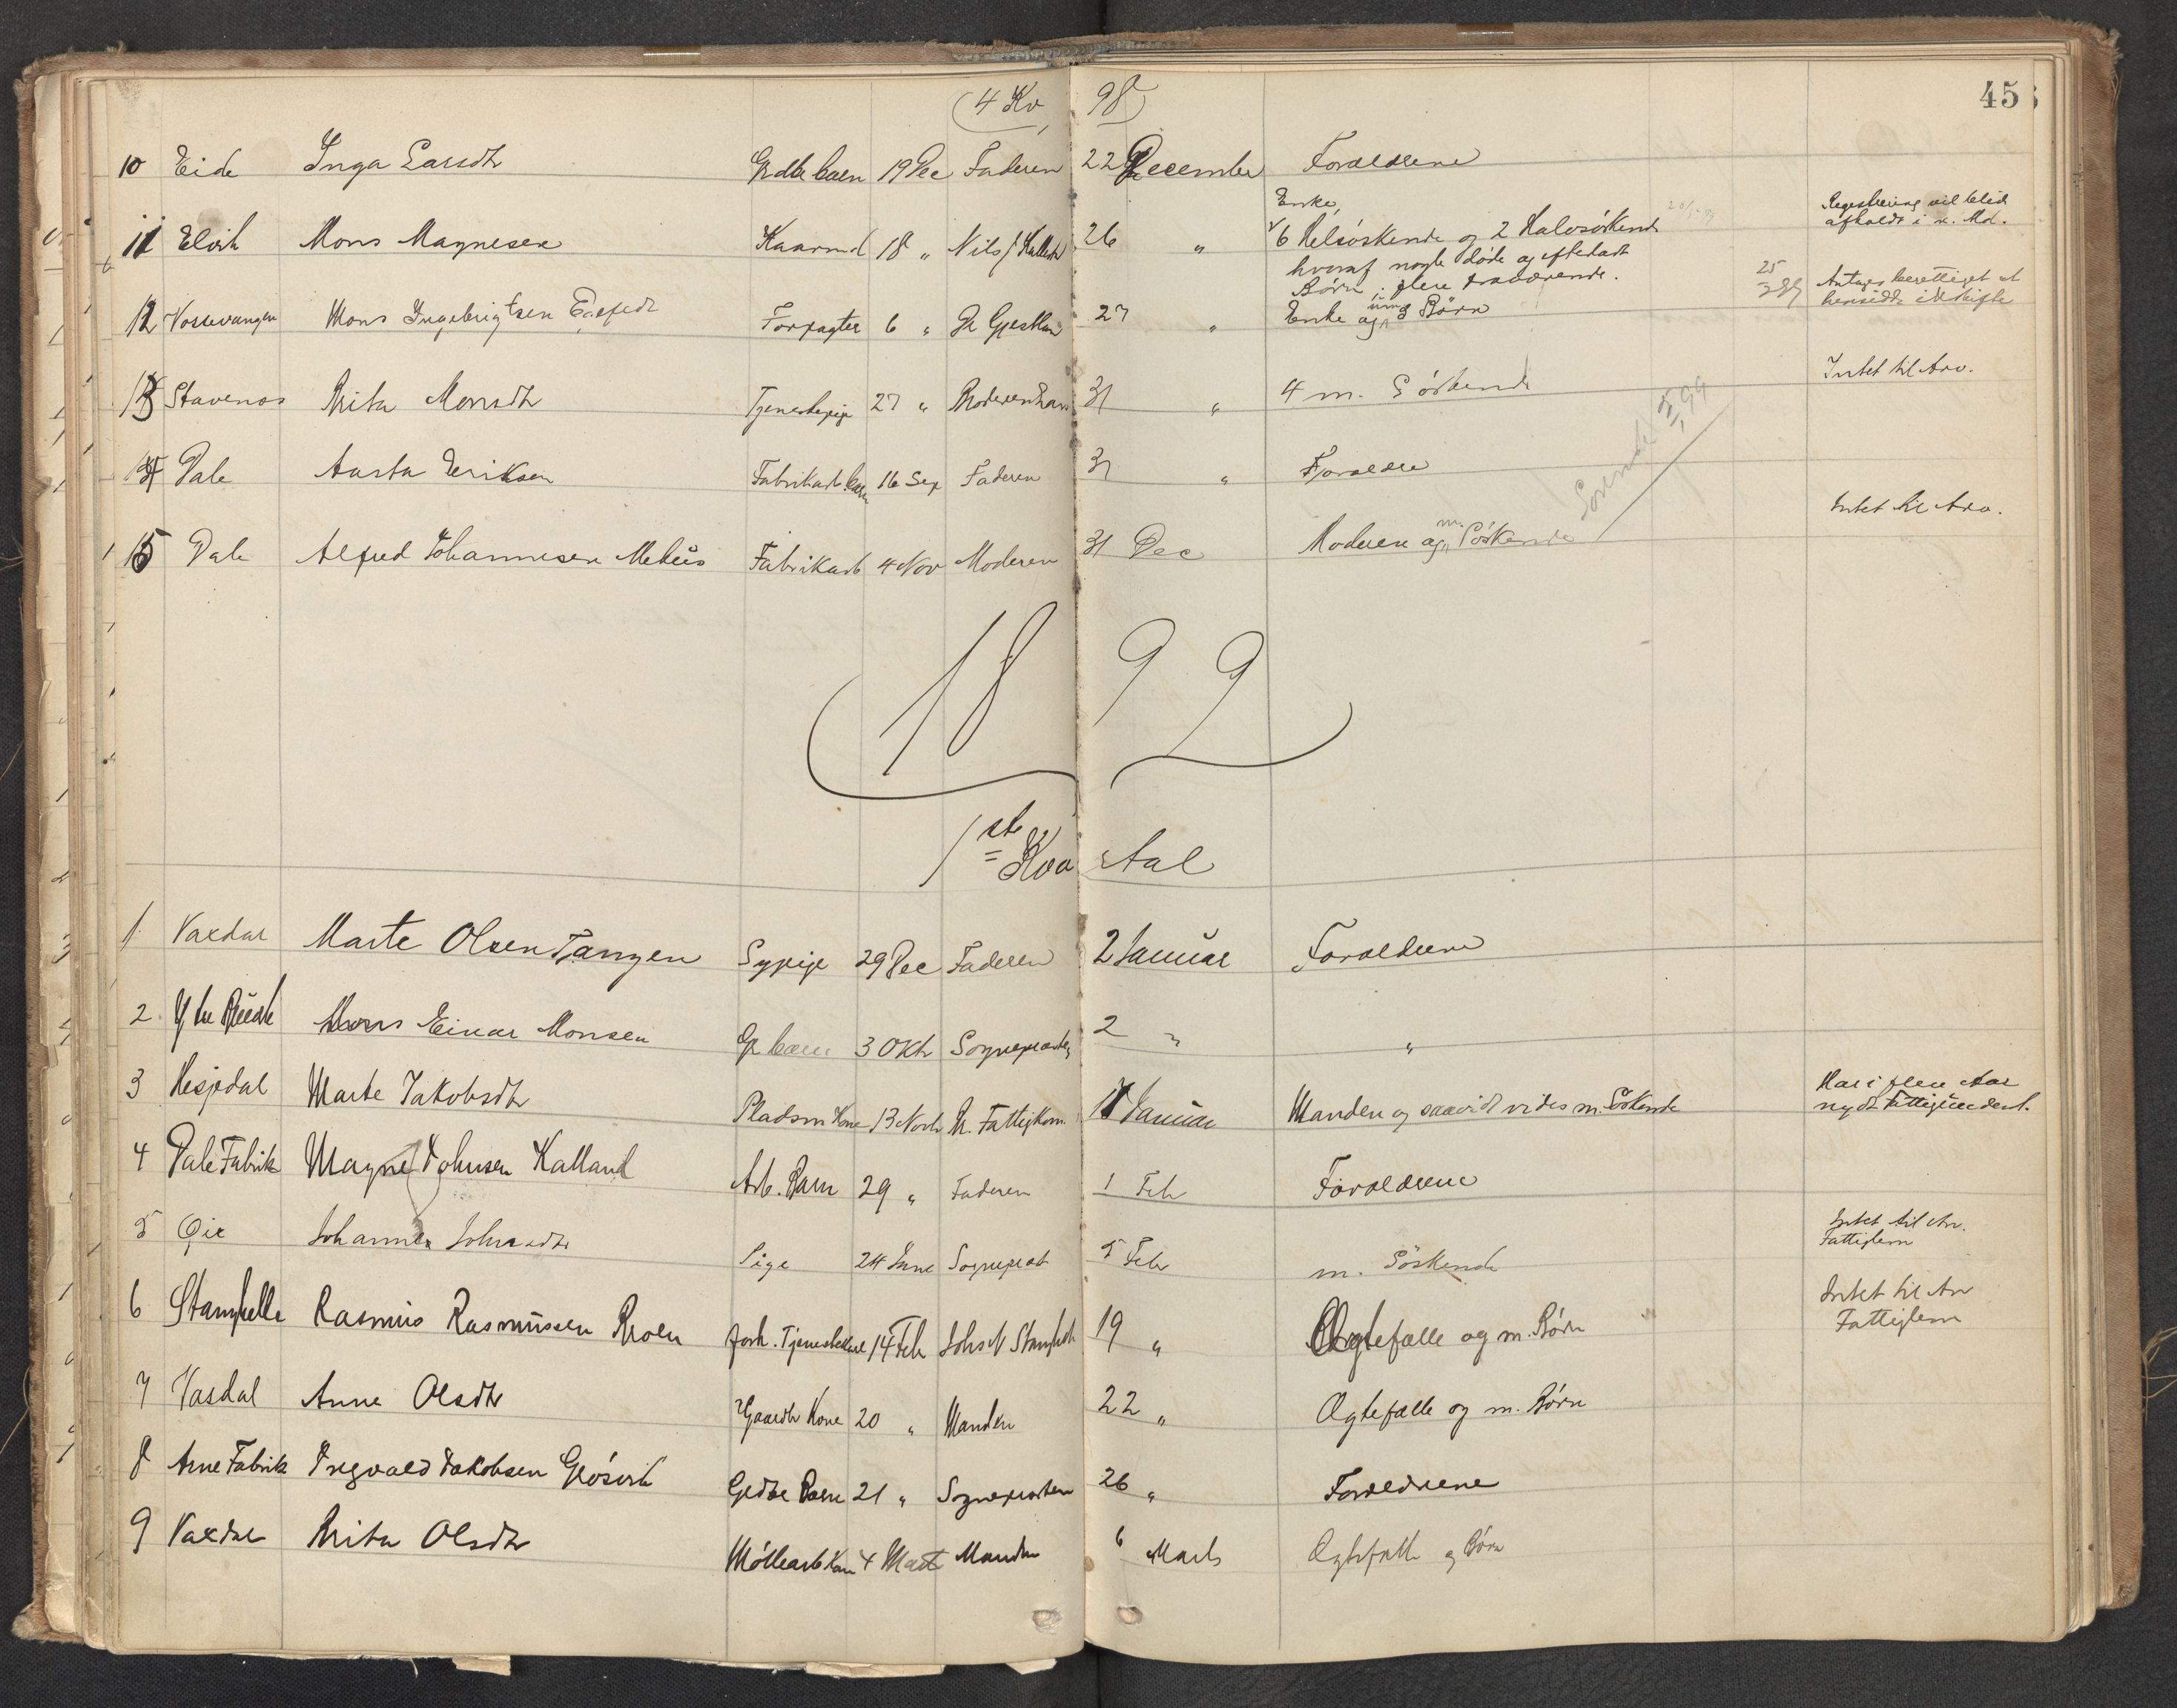 45
(4 Kv 98)
10 Eide Inga Larsdtr Grdbr barn 19 Dec Faderen 22 December Forældrene
Enke, Registrering vil blive
11 Elvik Mons Magnesen Kaarmd 18 " Nils J 26 " 6 Helsøskende og 2 Halvsøskende afholdt i n. Md.
hvoraf nogle døde og efterladt
Børn, flere fraværende.
12 Vossevangen Mons Ingebrigtsen Forpagter 6 " 27 " Enke og umg 3 Børn 25 Antages berettiget at
hensidde i Uskifte
13 Stavenes Brita Monsdtr Tjenestepige 27 " 31 " 4 m. Søskende Intet til Arv.
14 Dale Aasta Eriksen Fabrikarb. barn 16 Sep Faderen 31 " Forældre
15 Dale Alfred Johannesen Mehus Fabrikarb 4 Nov Moderen 31 Dec Moderen og m. Søskende Intet til Arv.
1899
1ste Kvartal
1 Vaxdal Marte Olsen Tangen Sypige 29 Dec Faderen 2 Januar Forældrene
2 Mons Einar Monsen Gr barn 3 Okt Sognepresten 2 " "
3 Hesjedal Marte Jakobsdtr Pladsm Kone 13 Novb Fattigkom. 17 Januar Manden og saavidt vides m. Søskende Har i flere Aar
nydt Fattigunderst.
4 Dale Fabrik Magne Johnsen Kalland Arb. Barn 29 " Faderen 1 Feb Forældrene
5 Øie Johanne Johnsdtr Pige 24 Jan Sogneprest 5 Feb m. Søskende Intet til Arv.
Fattiglem
6 Stamphelle Rasmus Rasmussen Moen forh. Tjenestekarl 14 Feb Johs N Stamphelle 19 " Ægtefælle og m. Børn Intet til Arv
Fattiglem
7 Vaxdal Anne Olsdtr Gaardbr Kone 20 " Manden 22 " Ægtefælle og m. Børn
8 Arne Fabrik Ingvald Jakobsen Grdbr Barn 21 " Sognepresten 26 " Forældrene
9 Vaxdal Brita Olsdtr Møllearb Kone 4 Marts Manden 6 Marts Ægtefælle og Børn